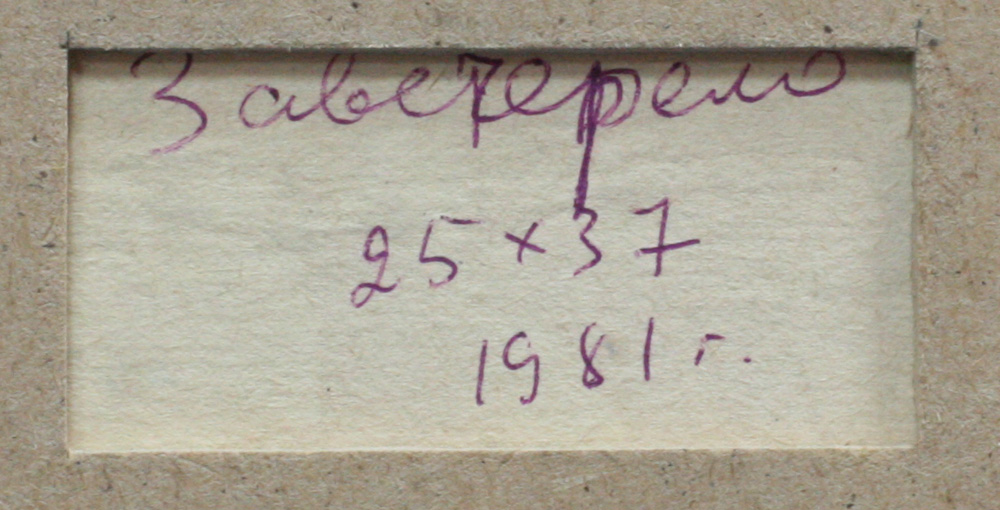 Завечерело
25 × 37
1981 г.